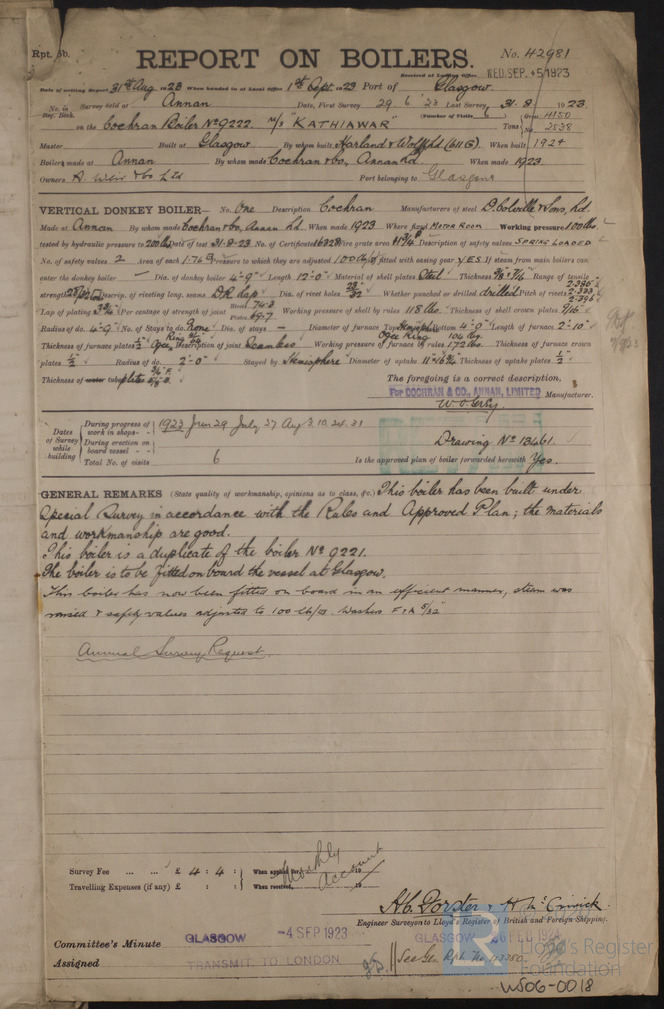 Rpt. 5b.
REPORT ON BOILERS.
No. 42981
Received at London Office WED. SEP. 5 1923
Date of writing Report 31st Aug 1923 When handed in at Local Office 1st Sept. 1923 Port of Glasgow.
No. in Reg. Book. Survey held at Annan Date, First Survey 29. 6. 23 Last Survey 31. 8. 1923
on the Cochran Boiler No 9222. M/S "KATHIAWAR" (Number of Visits 6) Tons Gross 4150 Net 2538
Master Built at Glasgow. By whom built Harland & Wolff Ld (611 G) When built 1924
Boilers made at Annan By whom made Cochran & Co, Annan Ld. When made 1923.
Owners Port belonging to Glasgow
VERTICAL DONKEY BOILER— No. One Description Cochran Manufacturers of steel D. Colville & Sons, Ld.
Made at Annan By whom made Cochran & Co. Annan Ld. When made 1923 Where fixed MOTOR ROOM Working pressure 100 lbs
tested by hydraulic pressure to 200 lbs Date of test 31-8-23 No. of Certificate Fire grate area Description of safety valves SPRING LOADED
No. of safety valves 2 Area of each 1.769 Pressure to which they are adjusted 100 fitted with easing gear YES If steam from main boilers can
enter the donkey boiler — Dia. of donkey boiler 4'-9" Length 12'-0" Material of shell plates Steel Thickness Range of tensile
strength Descrip. of riveting long. seams D.R. Lap Dia. of rivet holes Whether punched or drilled drilled Pitch of rivets
Lap of plating Per centage of strength of joint Rivets 74.3 Plates 69.7 Working pressure of shell by rules 118 lbs Thickness of shell crown plates 9/16"
Radius of do. 4'-9" No. of Stays to do. None Dia. of stays — Diameter of furnace Top Hemisphere Bottom 4'-9" Length of furnace 2'-10"
Thickness of furnace plates 1/2" Description of joint Seamless Working pressure of furnace by rules 172 lbs. Thickness of furnace crown
plates 1/2" Radius of do. 2'-0" Stayed by Hemisphere Diameter of uptake Thickness of uptake plates 1/2"
Thickness of water tubes plates
The foregoing is a correct description.
For COCHRAN & CO., ANNAN, LIMITED Manufacturer.
Dates of Survey while building
During progress of work in shops - - 1923 Jun 29 July 27 Aug 3. 10. 24. 31
During erection on board vessel - - -
Total No. of visits 6
Drawing No 13461.
Is the approved plan of boiler forwarded herewith Yes.
GENERAL REMARKS (State quality of workmanship, opinions as to class, &c.) This boiler has been built under
Special Survey in accordance with the Rules and Approved Plan; the materials
and workmanship are good.
This boiler is a duplicate of the boiler No 9221.
The boiler is to be fitted on board the vessel at Glasgow.
This boiler has now been fitted on board in an efficient manner, steam was
raised & safety valves adjusted to 100 lb/□". Washers F & A 5/32"
Annual Survey Request.
Survey Fee ... ... £ 4 : 4 : When applied for, Monthly Account 19
Travelling Expenses (if any) £ : : When received, 19
H.C. Forster &
Engineer Surveyor to Lloyd's Register of British and Foreign Shipping.
Committee's Minute GLASGOW -4 SEP 1923 GLASGOW
Assigned TRANSMIT TO LONDON See Gls. Rpt. No 43350.
LR Lloyd's Register Foundation
WS06-0018